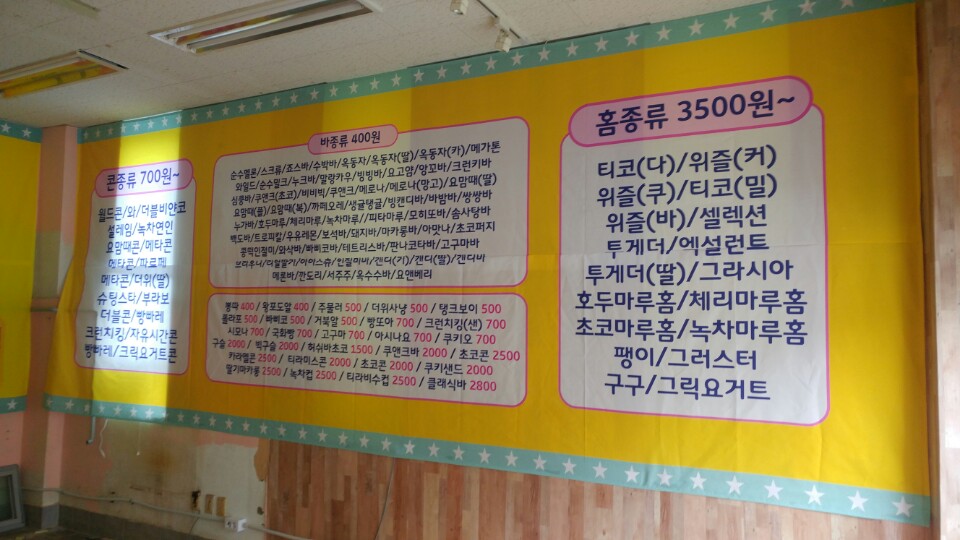 콘종류 700원~
월드콘/와/더블비얀코
설레임/녹차연인
요맘때콘/메타콘
메타콘/따르페
메타콘/더위(딸)
슈팅스타/부라보
더블콘/빵바레
크런치킹/자유시간콘
빵빠레/크릭요거트콘
바종류 400원
순수멜론/스크류/죠스바/수박바/옥동자/옥동자(딸)/옥동자(카)/메가톤
와일드/순수밀크/누크바/말랑카우/빙빙바/요고얌/망꼬바/크런키바
심쿵바/쿠앤크(초코)/비비빅/쿠앤크/메로나/메로나(망고)/요맘때(딸)
요맘때(플)/요맘때(복)/까페오레/생귤탱귤/빙캔디바/바밤바/쌍쌍바
누가바/호두마루/체리마루/녹차마루//피타마루/모히또바/솜사탕바
백도바/트로피칼/우유레몬/보석바/돼지바/마카롱바/아맛나/초코퍼지
콩떡인절미/와삭바/빠삐코바/테트리스바/판나코타바/고구마바
캔디(딸)/캔디바
메론바/깐도리/서주주/옥수수바/요앤베리
뽕따 400 / 왕포도알 400 / 주물러 500 / 더위사냥 500 / 탱크보이 500
폴라포 500 / 빠삐코 500 / 거북알 500 / 빵또아 700 / 크런치킹(샌) 700
시모나 700 / 국화빵 700 / 고구마 700 / 아시나요 700 / 쿠키오 700
구슬 2000 / 빅구슬 2000 / 허쉬바초코 1500 / 쿠앤크바 2000 / 초코콘 2500
카라멜콘 2500 / 티라미스콘 2000 / 초코콘 2000 / 쿠키샌드 2000
딸기마카롱 2500 / 녹차컵 2500 / 티라비수컵 2500 / 클래식바 2800
홈종류 3500원~
티코(다)/위즐(커)
위즐(쿠)/티코(밀)
위즐(바)/셀렉션
투게더/엑설런트
투게더(딸)/그라시아
호두마루홈/체리마루홈
초코마루홈/녹차마루홈
팽이/그러스터
구구/그릭요거트